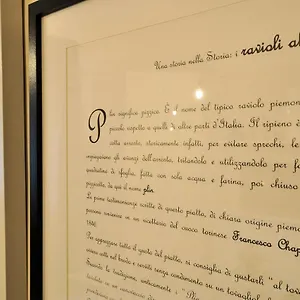 Una storia nella Storia: i ravioli al
Plin significa pizzico. È il nome del tipico raviolo piemon
piccolo rispetto a quelli di altre parti d'Italia. Il ripieno d
cotta arrosto, storicamente infatti, per evitare sprechi, le
impiegavano gli avanzi dell'arrosto, tritandolo e utilizzandolo per f
quadratino di sfoglia, fatta con sola acqua e farina, poi chiuso
pizzicotto, da qui il nome plin.
Le prime testimonianze scritte di questo piatto, di chiara origine piemo
possono rinvenire in un ricettario del cuoco torinese Francesco Chap
1846.
Per apprezzare tutto il gusto del piatto, si consiglia di gustarli " al tov
senza condimento su un tovagliol
Secondo la tradizione, anticamente i "Pl